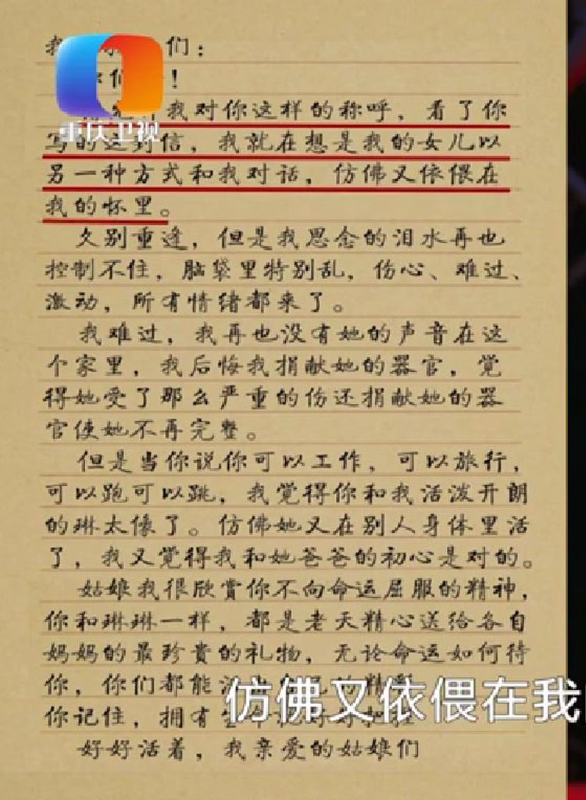 我 们：
你们 ！
我对你这样的称呼，看了你
写的这封信，我就在想是我的女儿以
另一种方式和我对话，仿佛又依偎在
我的怀里。
久别重逢，但是我思念的泪水再也
控制不住，脑袋里特别乱，伤心、难过、
激动，所有情绪都来了。
我难过，我再也没有她的声音在这
个家里，我后悔我捐献她的器官，觉
得她受了那么严重的伤还捐献她的器
官使她不再完整。
但是当你说你可以工作，可以旅行，
可以跑可以跳，我觉得你和我活泼开朗
的琳太像了。仿佛她又在别人身体里活
了，我又觉得我和她爸爸的初心是对的。
姑娘我很欣赏你不向命运屈服的精神，
你和琳琳一样，都是老天精心送给各自
妈妈的最珍贵的礼物，无论命运如何待
你，你们都能
你记住，拥有
好好活着，我亲爱的姑娘们
重庆卫视
仿佛又依偎在我